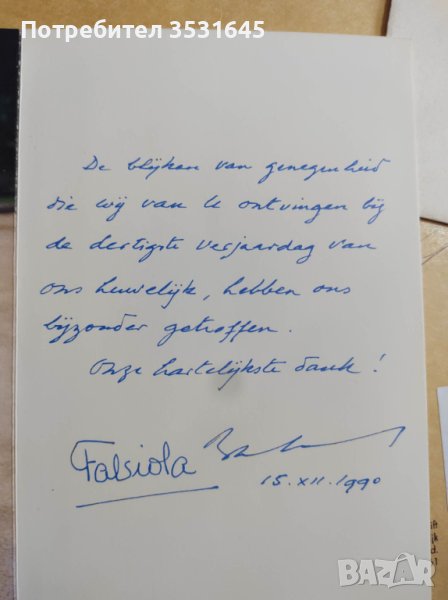 Потребител 3531645
De blijken van genegenheid
die wij van U ontvingen bij
de dertigste verjaardag van
ons huwelijk, hebben ons
bijzonder getroffen.
Onze hartelijkste dank !
Fabiola
15.XII.1990
BAZAR